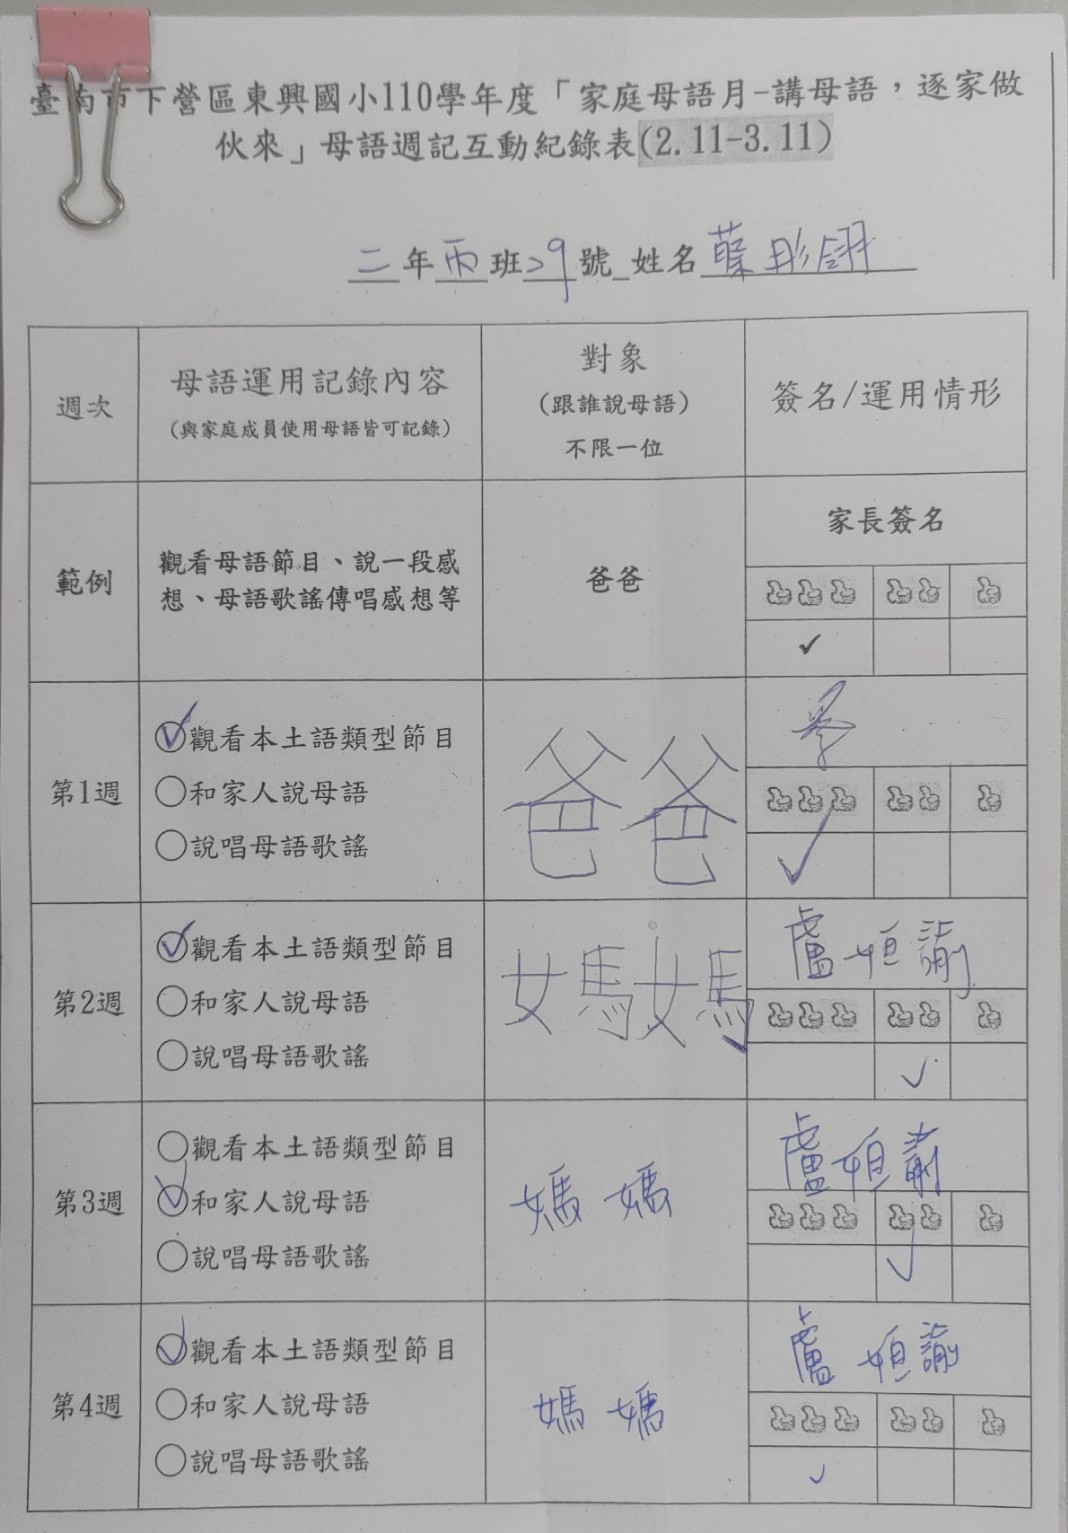 臺南市下營區東興國小110學年度「家庭母語月-講母語，逐家做
伙來」母語週記互動紀錄表(2.11-3.11)
二年丙班29號_姓名蔡彤翎
週次
母語運用記錄內容
(與家庭成員使用母語皆可記錄)
對象
(跟誰說母語)
不限一位
簽名/運用情形
範例
觀看母語節目、說一段感
想、母語歌謠傳唱感想等
爸爸
家長簽名
✓
第1週
觀看本土語類型節目
和家人說母語
說唱母語歌謠
爸爸
✓
第2週
觀看本土語類型節目
和家人說母語
說唱母語歌謠
媽媽
盧
✓
第3週
觀看本土語類型節目
和家人說母語
說唱母語歌謠
媽媽
盧
✓
第4週
觀看本土語類型節目
和家人說母語
說唱母語歌謠
媽媽
盧
✓